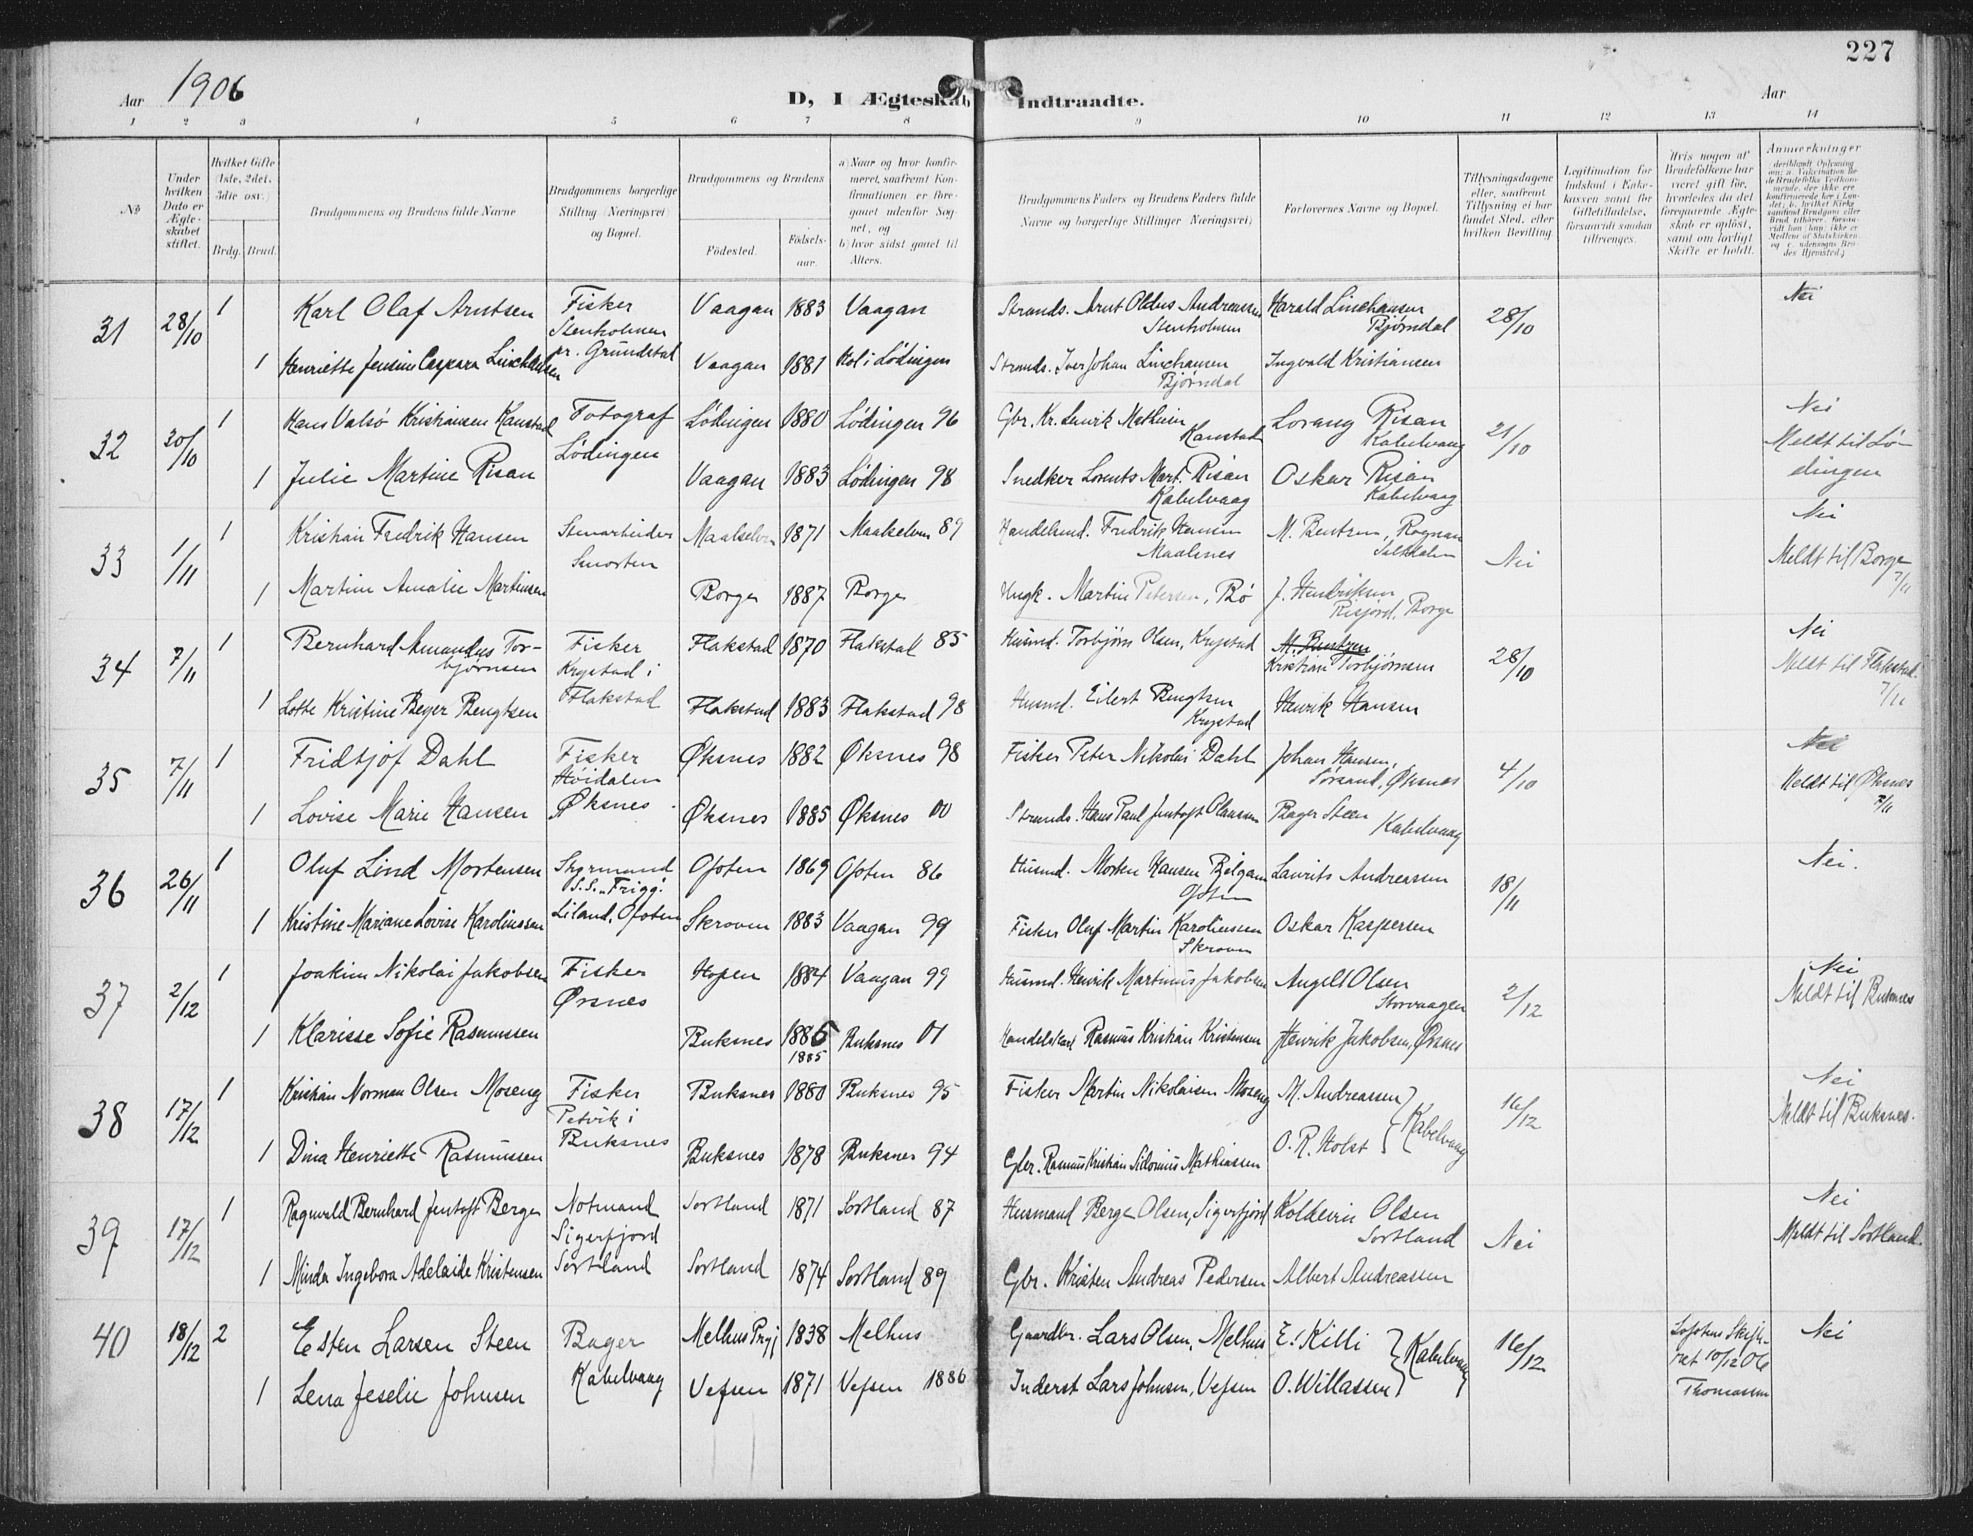 227
Aar 1906
D, I Ægteskab Indtraadte.
Aar
1 2 3 4 5 6 7 8 9 10 11 12 13 14
No
Under hvilken Dato er Ægteskabet stiftet.
Hvilket Gifte (1ste, 2det, 3die osv.)
Brdg. Brud.
Brudgommens og Brudens fulde Navne
Brudgommens borgerlige Stilling (Næringsvei) og Bopæl.
Brudgommens og Brudens
Fødested.
Fødsels-aar.
a) Naar og hvor konfirmeret, saafremt Konfirmationen er foregaaet udenfor Sognet, og
b) hvor sidst gaaet til Alters.
Brudgommens Faders og Brudens Faders fulde Navne og borgerlige Stillinger (Næringsvei)
Forlovernes Navne og Bopæl.
Tillysningsdagene eller, saafremt Tillysning ei har fundet Sted, efter hvilken Bevilling
Legitimation for Indskud i Enkekassen samt for Giftetilladelse, forsaavidt saadan tiltrænges.
Hvis nogen af Brudefolkene har været gift før, hvorledes da det foregaaende Ægteskab er opløst, samt om lovligt Skifte er holdt.
Anmærkninger
31 28/10 1 Karl Olaf Arntsen Fisker Stenholmen pr. Grundstad Vaagan 1883 Vaagan Strands. Arnt Oldus Andreassen Stenholmen Harald Linchausen Bjørndal 28/10 Nei
1 Henriette Jensine Caspara Linchausen Vaagan 1881 Hol i Lødingen Strands. Iver Johan Linchausen Bjørndal Ingvald Kristiansen
32 30/10 1 Hans Valsø Kristiansen Kanstad Fotograf Lødingen Lødingen 1880 Lødingen 96 Gbr. Kr. Kanstad Lorang Risan Kabelvaag 21/10 Nei Meldt til Lødingen
1 Julie Martine Risan Vaagan 1883 Lødingen 98 Snedker Lorents Mart. Risan Kabelvaag Oskar Risan Kabelvaag
33 1/11 1 Kristian Fredrik Hansen Stenarbeider Smorten Maalselven 1871 Maalselven 89 Handelsmd. Fredrik Hansen Maalsnes M. Bentzen, Rognan Saltdalen Nei Nei Meldt til Borge 7/11
1 Martine Amalie Martinsen Borge 1887 Borge Ungk. Martin Petersen, Bø J. Hendriksen Risjord, Borge
34 7/11 1 Bernhard Amandus Torbjørnsen Fisker Krystad i Flakstad Flakstad 1870 Flakstad 85 Husmd. Torbjørn Olsen, Krystad M. Bentzen Kristian Torbjørnsen 28/10 Nei Meldt til Flakstad 7/11
1 Lotte Kristine Beyer Bengtsen Flakstad 1883 Flakstad 98 Husmd. Eilert Bengtsen Krystad Henrik Hansen
35 7/11 1 Fridtjof Dahl Fisker Høidalen Øksnes Øksnes 1882 Øksnes 98 Fisker Peter Nikolai Dahl Johan Hansen, Sørsand, Øksnes 4/10 Nei Meldt til Øksnes 7/11
1 Lovise Marie Hansen Øksnes 1885 Øksnes 00 Strands. Hans Paul Jentoft Olaussen Bager Steen Kabelvaag
36 26/11 1 Oluf Lind Mortensen Styrmand S.S. "Frigg". Liland, Ofoten Ofoten 1869 Ofoten 86 Husmd. Morten Hansen Ofoten Laurits Andreassen 18/11 Nei.
1 Kristine Mariane Lovise Karoliussen Skroven 1883 Vaagan 99 Fisker Oluf Martin Karoliussen Skroven Oskar Kaspersen
37 2/12 1 Joakim Nikolai Jakobsen Fisker Ørsnes Hopen 1884 Vaagan 99 Husmd. Henrik Martinus Jakobsen Angell Olsen Storvaagen 2/12 Nei Meldt til Buksnes
1 Klarisse Sofie Rasmussen Buksnes 1885 1885 Buksnes 01 Rasmus Kristian Kristensen Henrik Jakobsen, Ørsnes
38 17/12 1 Kristian Norman Olsen Moseng Fisker Petvik i Buksnes Buksnes 1880 Buksnes 95 Fisker Martin Nikolaisen Moseng M. Andreassen Kabelvaag 16/12 Nei Meldt til Buksnes.
1 Dina Henriette Rasmussen Buksnes 1878 Buksnes 94 Gbr. Rasmus Kristian Sidonius Mathiassen O. R. Holst
39 17/12 1 Ragnvald Bernhard Jentoft Berge Notmand Sigerfjord Sortland Sortland 1871 Sortland 87 Husmand Berge Olsen, Sigerfjord Koldevin Olsen Sortland Nei Nei Meldt til Sortland.
1 Minda Ingebora Adelaide Kristensen Sortland 1874 Sortland 89 Gbr. Kristen Andreas Pedersen Albert Andreassen
40 18/12 2 Esten Larsen Steen Bager Kabelvaag Melhus Prgj 1838 Melhus Gaardbr. Lars Olsen, Melhus E. Killi Kabelvaag 16/12 Lofotens Skifteret 10/12 06 Thomassen Nei
1 Lena Jeselie Johnsen Vefsen 1871 Vefsen 1886 Inderst Lars Johnsen, Vefsen O. Willassen